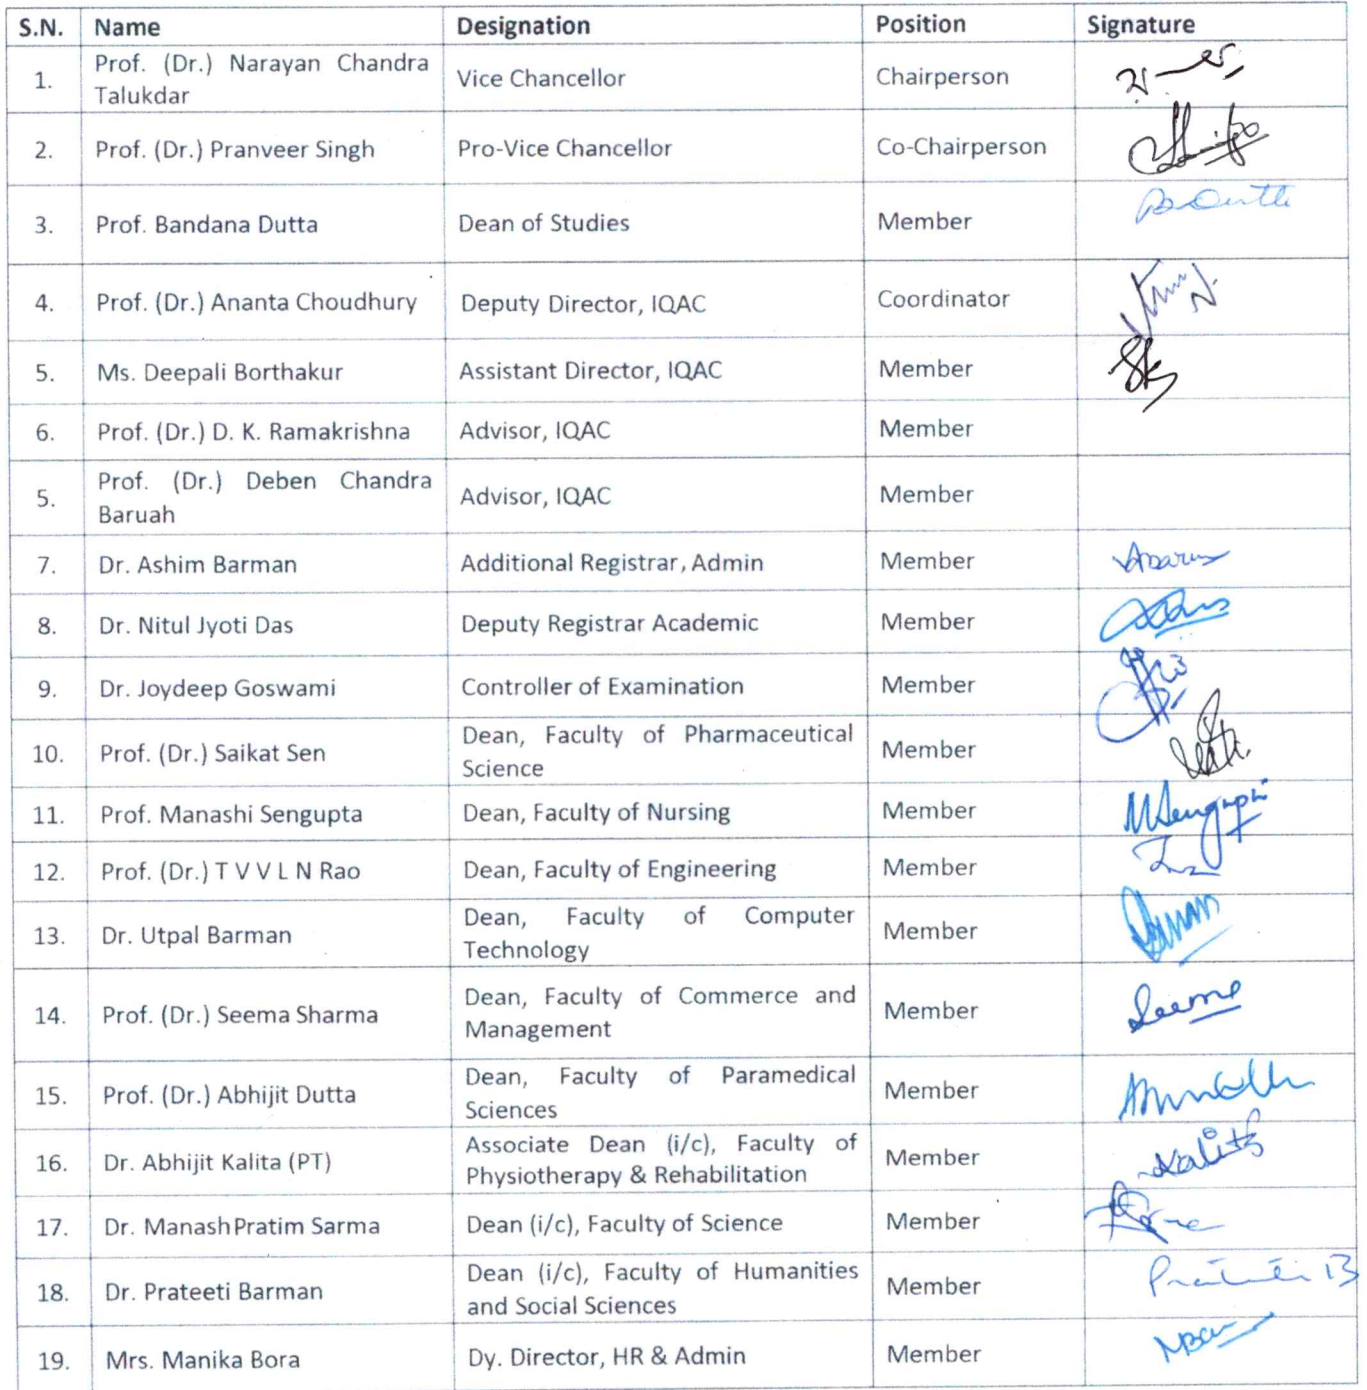 S.N. Name Designation Position Signature
1. Prof. (Dr.) Narayan Chandra Talukdar Vice Chancellor Chairperson
2. Prof. (Dr.) Pranveer Singh Pro-Vice Chancellor Co-Chairperson
3. Prof. Bandana Dutta Dean of Studies Member
4. Prof. (Dr.) Ananta Choudhury Deputy Director, IQAC Coordinator
5. Ms. Deepali Borthakur Assistant Director, IQAC Member
6. Prof. (Dr.) D. K. Ramakrishna Advisor, IQAC Member
5. Prof. (Dr.) Deben Chandra Baruah Advisor, IQAC Member
7. Dr. Ashim Barman Additional Registrar, Admin Member
8. Dr. Nitul Jyoti Das Deputy Registrar Academic Member
9. Dr. Joydeep Goswami Controller of Examination Member
10. Prof. (Dr.) Saikat Sen Dean, Faculty of Pharmaceutical Science Member
11. Prof. Manashi Sengupta Dean, Faculty of Nursing Member MSengupta
12. Prof. (Dr.) T V V L N Rao Dean, Faculty of Engineering Member
13. Dr. Utpal Barman Dean, Faculty of Computer Technology Member
14. Prof. (Dr.) Seema Sharma Dean, Faculty of Commerce and Management Member Seema
15. Prof. (Dr.) Abhijit Dutta Dean, Faculty of Paramedical Sciences Member
16. Dr. Abhijit Kalita (PT) Associate Dean (i/c), Faculty of Physiotherapy & Rehabilitation Member Kalita
17. Dr. Manash Pratim Sarma Dean (i/c), Faculty of Science Member
18. Dr. Prateeti Barman Dean (i/c), Faculty of Humanities and Social Sciences Member Prateeti B
19. Mrs. Manika Bora Dy. Director, HR & Admin Member